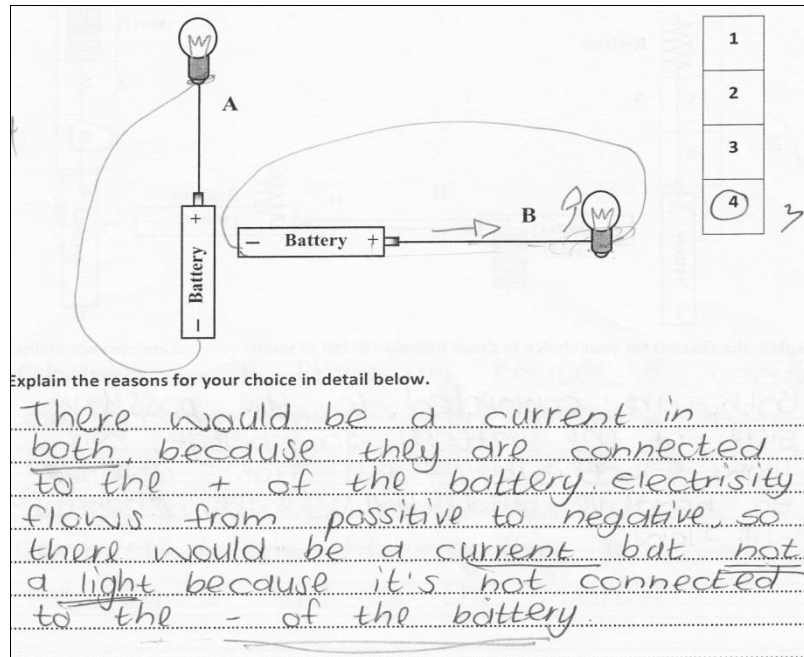 A
1
2
3
4
3
B
+
Battery
−
− Battery +
Explain the reasons for your choice in detail below.
There would be a current in
both, because they are connected
to the + of the battery. Electrisity
flows from possitive to negative, so
there would be a current but not
a light because it's not connected
to the - of the battery.